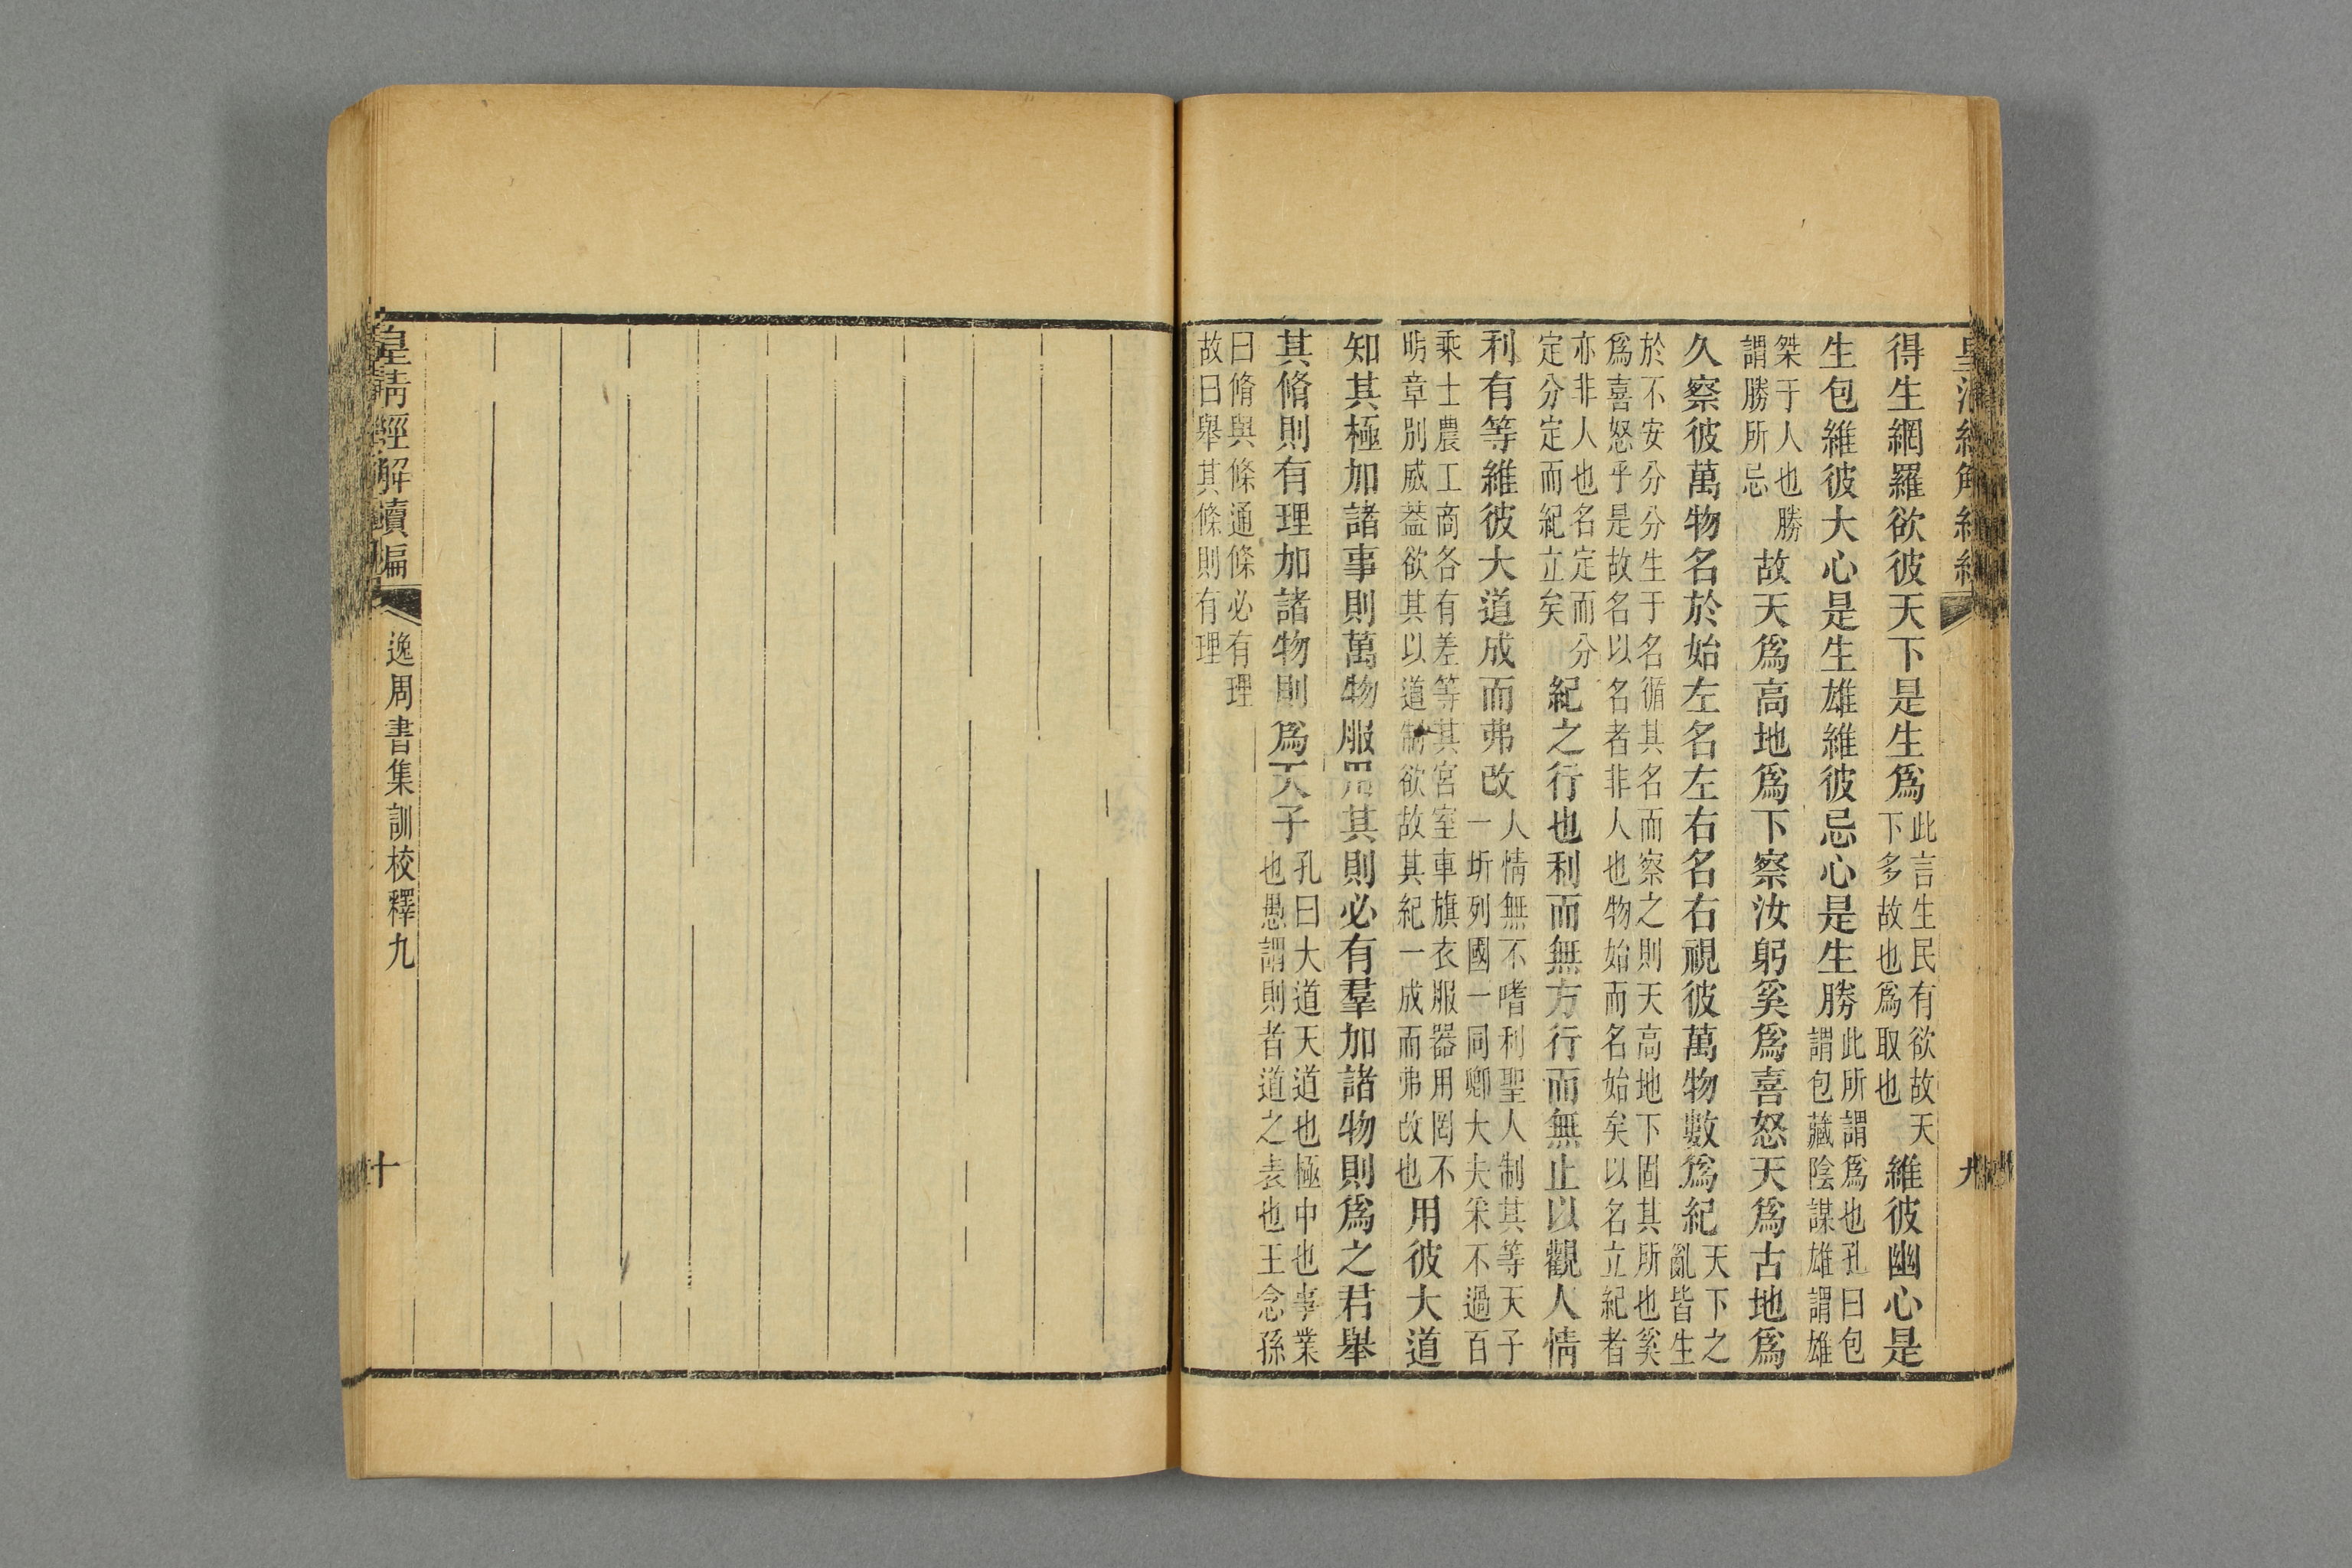 得生網羅欲彼天下是生爲此言生民有欲故天下多故也爲取也維彼幽心是
生包維彼大心是生雄維彼忌心是生勝此所謂爲也孔曰包謂包藏陰謀雄謂雄
桀于人也勝謂勝所忌故天爲高地爲下察汝躬奚爲喜怒天爲古地爲
久察彼萬物名於始左名左右名右視彼萬物數爲紀天下之亂皆生
於不安分分生于名循其名而察之則天高地下固其所也奚爲喜怒乎是故名以名者非人也物始而名始矣以名立紀者
亦非人也名定而分定分定而紀立矣紀之行也利而無方行而無止以觀人情
利有等維彼大道成而弗改人情無不嗜利聖人制其等天子一圻列國一同卿大夫采不過百
乘士農工商各有差等其宮室車旗衣服器用罔不明章別威葢欲其以道制欲故其紀一成而弗改也用彼大道
知其極加諸事則萬物服用其則必有羣加諸物則爲之君舉
其脩則有理加諸物則爲天子孔曰大道天道也極中也事業也愚謂則者道之表也王念孫
曰脩與條通條必有理故曰舉其條則有理
皇清經解續編 逸周書集訓校釋九 十